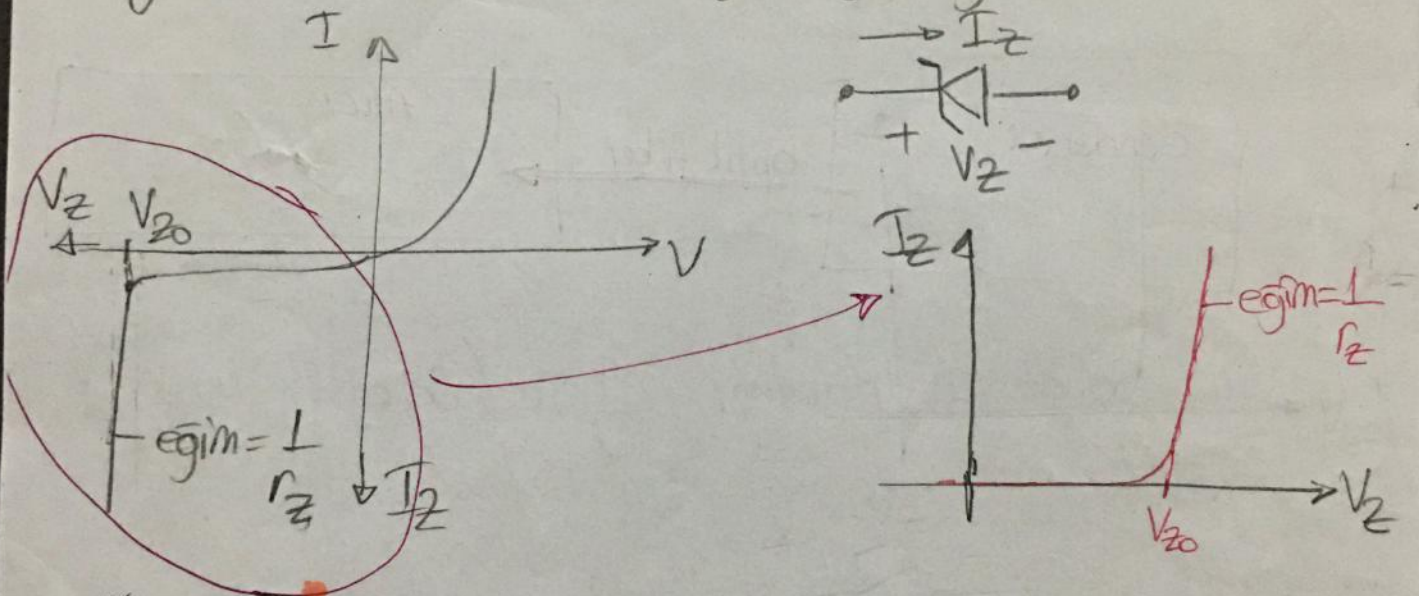 I
V
V_Z
V_Z0
eğim = 1/r_Z
I_Z
I_Z
+ V_Z −
I_Z
eğim = 1/r_Z
V_Z0
V_Z